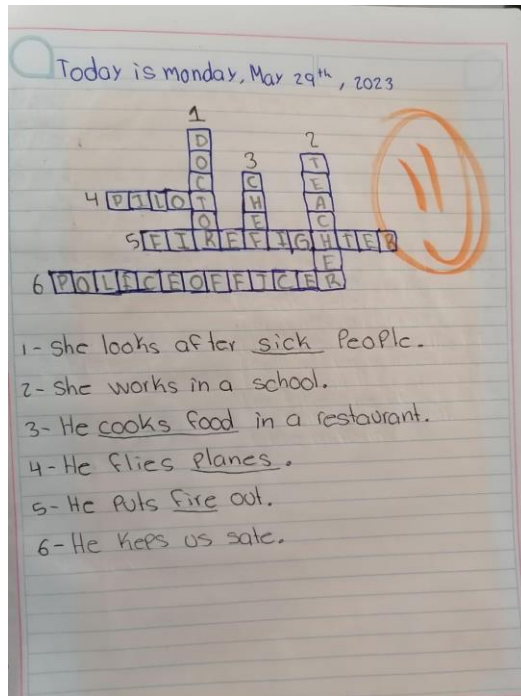 Today is monday, May 29th, 2023
1
2
3
4 PILOT
5 FIREFIGHTER
6 POLICEOFFICER
DOCTOR
CHEF
TEACHER
1- She looks after sick People.
2- She works in a school.
3- He cooks food in a restaurant.
4- He flies planes.
5- He Puts fire out.
6- He Keps us safe.